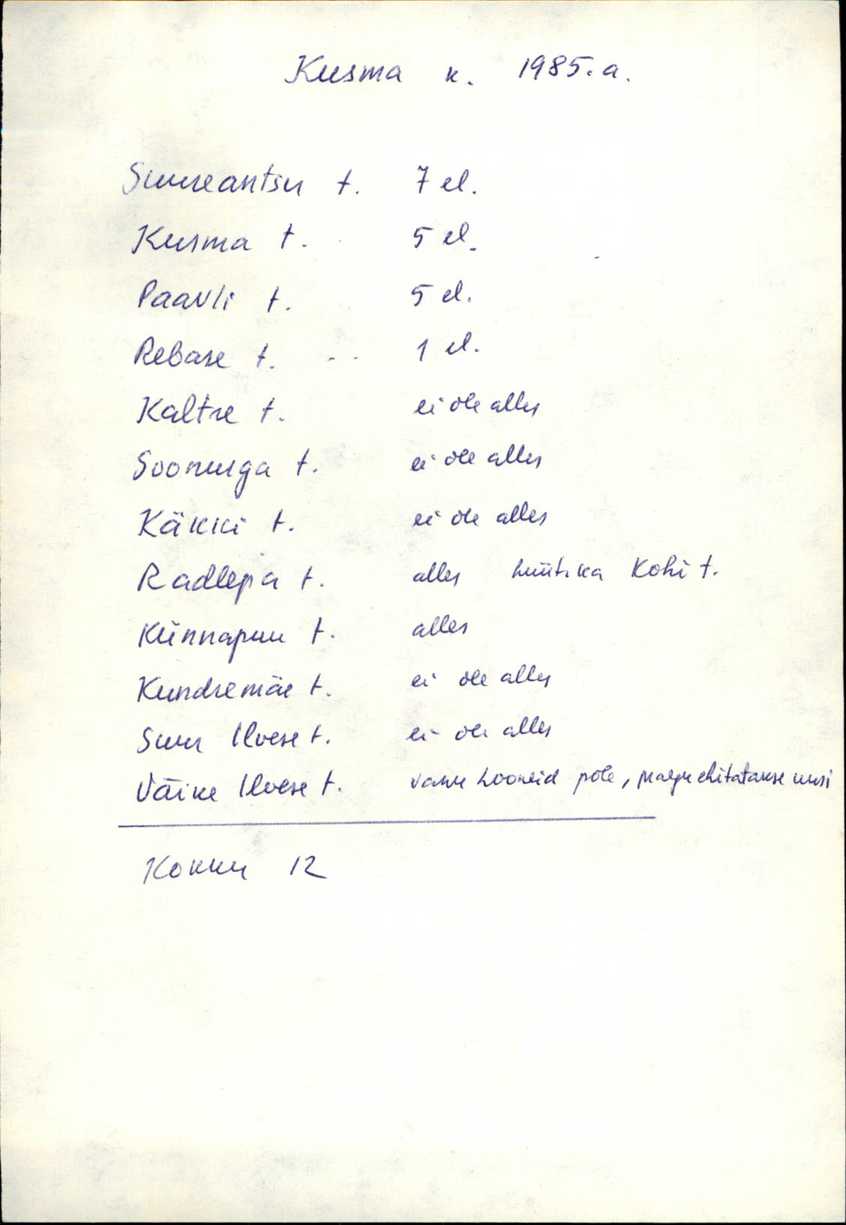 Kusma k. 1985. a.
Suureantsu t. 7 el.
Kusma t. 5 el.
Paavli t. 5 el.
Rebase t. 1 el.
Kaltre t. ei ole alles
Soonurga t. ei ole alles
Käkki t. ei ole alles
Radlepa t. alles hüütakse Kohi t.
Künnapuu t. alles
Kundremäe t. ei ole alles
Suur Ilvese t. ei ole alles
Väike Ilvese t. vanu hooneid pole, praegu ehitatakse uusi
Kokku 12